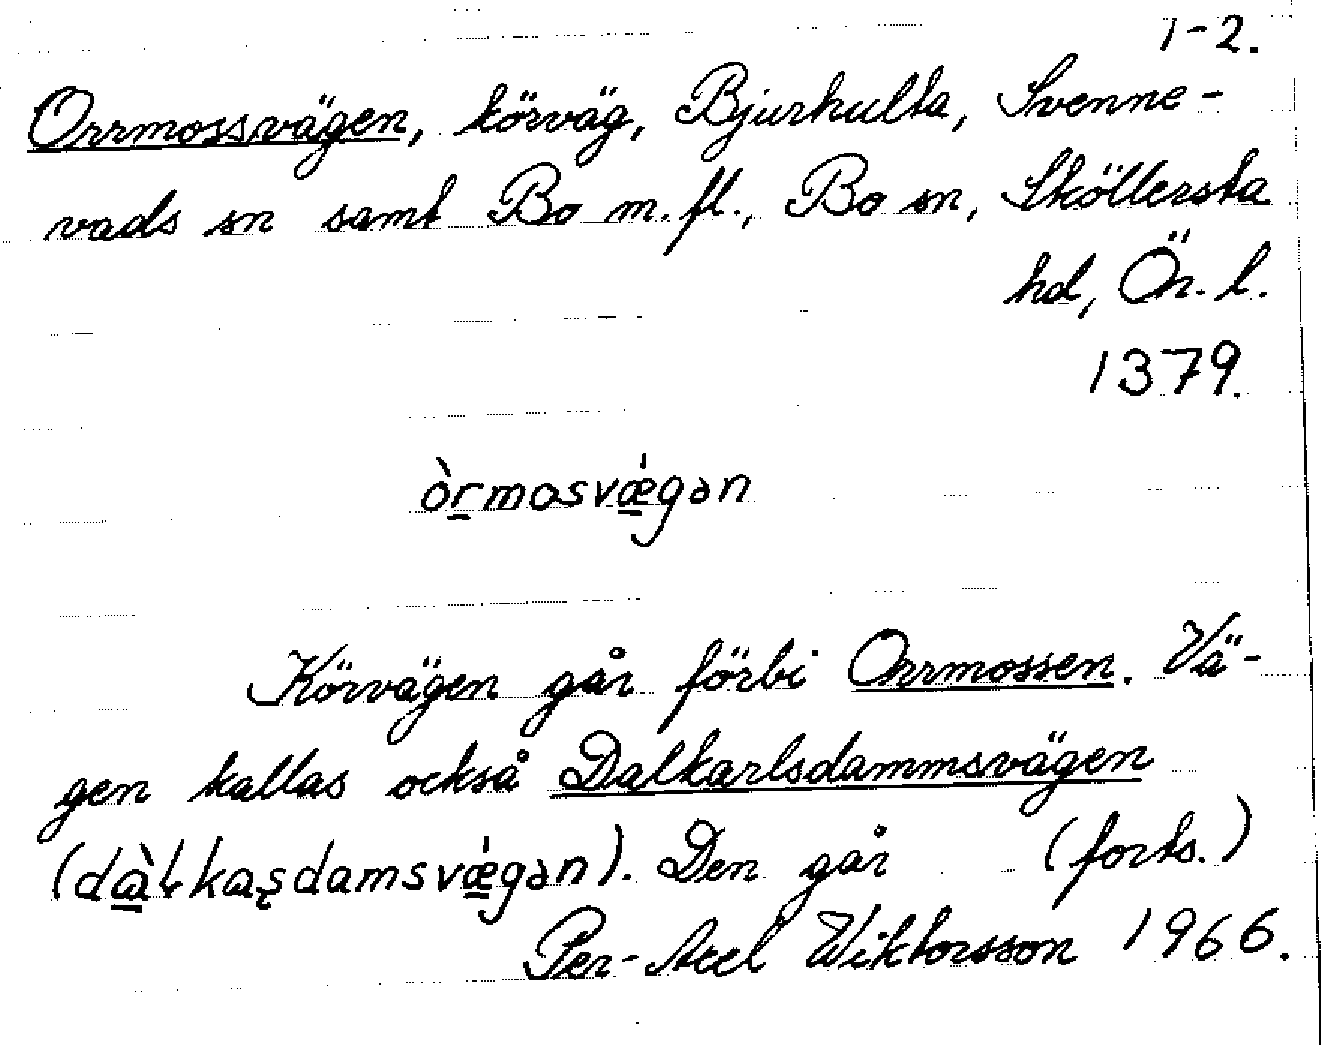 1-2.
Orrmossvägen, körväg, Bjurhulta, Svenne-
vads sn samt Bo m.fl., Bo sn, Sköllersta
hd, Ör. l.
1379.
òr̲mosvǽ̲gən
Körvägen går förbi Orrmossen. Vä-
gen kallas också Dalkarlsdammsvägen
(dà̲ɬkaʂdamsvǽ̲gən). Den går (forts.)
Per-Axel Wiktorsson 1966.